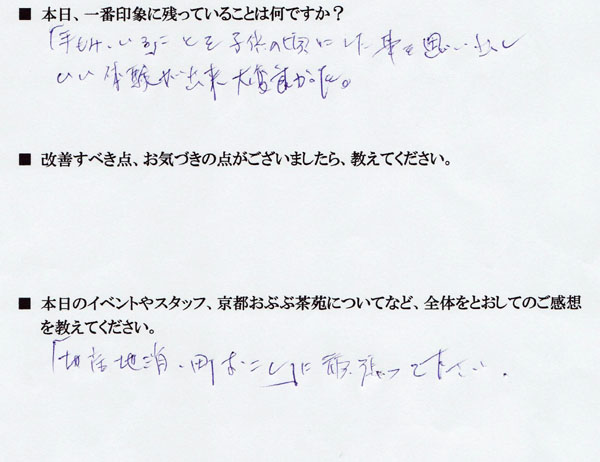 ■ 本日、一番印象に残っていることは何ですか？
「手もみ、いる」ことを子供の頃にした事を思い出し
いい体験が出来大変良かった。
■ 改善すべき点、お気づきの点がございましたら、教えてください。
■ 本日のイベントやスタッフ、京都おぶぶ茶苑についてなど、全体をとおしてのご感想
を教えてください。
「地産地消、町おこし」に頑張って下さい.